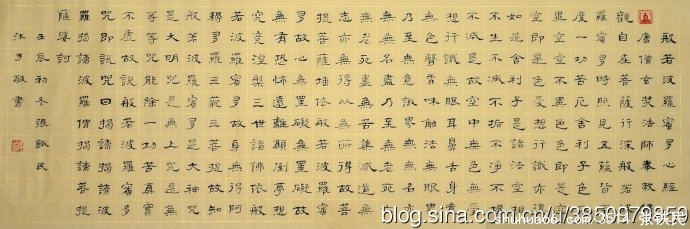 般若波羅蜜多心經
唐僧玄奘法師奉敕譯
觀自在菩薩行深般若波
羅蜜多時照見五蘊皆空
度一切苦厄舍利子色不異
空空不異色色即是空
空即是色受想行識亦復
如是舍利子是諸法空相
不生不滅不垢不淨不增
不減是故空中無色無受
想行識無眼耳鼻舌身意
無色聲香味觸法無眼界
乃至無意識界無無明亦
無無明盡乃至無老死亦
無老死盡無苦集滅道無
智亦無得以無所得故菩
提薩埵依般若波羅蜜多
故心無罣礙無罣礙故無
有恐怖遠離顛倒夢想
究竟涅槃三世諸佛依般
若波羅蜜多故得阿
耨多羅三藐三菩提故知
般若波羅蜜多是大神咒
是大明咒是無上咒是無
等等咒能除一切苦真實
不虛故說般若波羅蜜多
咒即說咒曰揭諦揭諦波
羅揭諦波羅僧揭諦菩提
薩婆訶
壬辰初冬張鐵民
沐手敬書
blog.sina.com.cn/u/3850979950